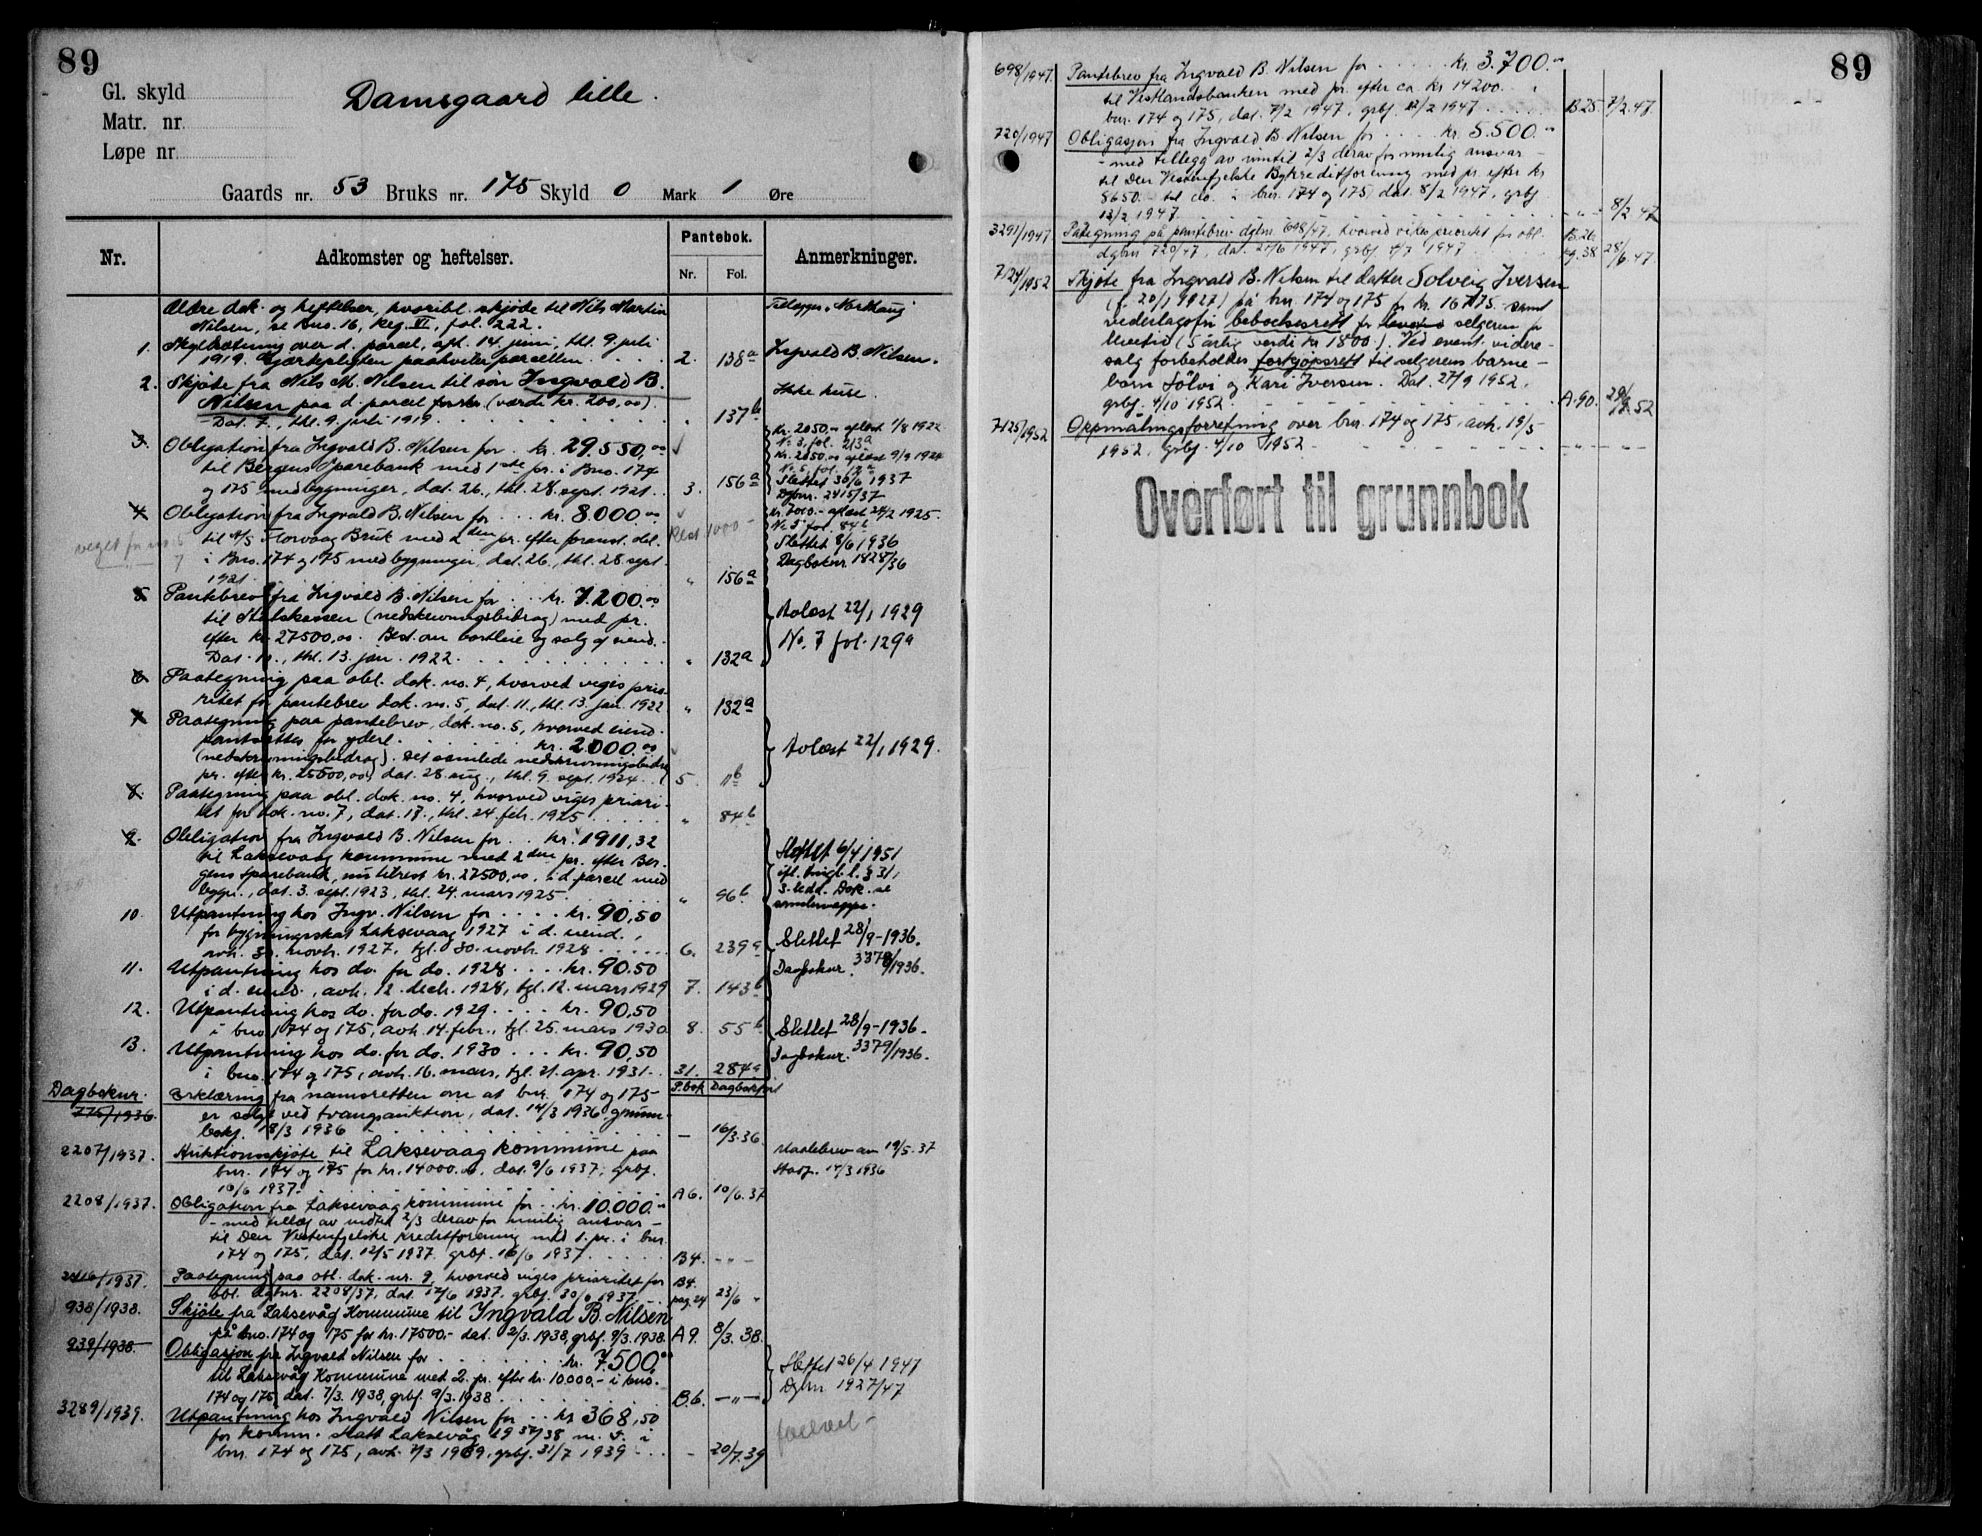 89
Gl. skyld
Damsgaard lille.
Matr. nr.
Løpe nr.
Gaards nr. 53 Bruks nr. 175 Skyld 0 Mark 1 Øre
Nr. Adkomster og heftelser. Pantebok. Nr. Fol. Anmerkninger.
Ældre dok. og heftelser, hvoribl. skjøde til Nils Martin
Nilsen, se bno. 16, Reg. VI, fol. 222.
1. Skyldsætning over d. parcel, afh. 14. juni, thl. 9. juli
1919. Gjærdepligten paahviler parcellen. 2. 138a Ingvald B. Nilsen.
2. Skjøte fra Nils M. Nilsen til søn Ingvald B.
Nilsen paa d. parcel for kr. (værdi kr. 200,00). Ikke huse.
Dat. 7., thl. 9. juli 1919. " 137b
3. Obligation fra Ingvald B. Nilsen for kr. 29.550,00
til Bergens Sparebank med 1ste pr. i Bno. 174
og 175 med bygninger, dat. 26., thl. 28. sept. 1921. 3. 156a
Kr. 2050,- aflæst 1/8 1922
No 3, fol. 213a
Kr. 2050,00 aflæst 9/9 1924
No 5, fol. 12a
Slettet 30/6 1937
Dgbnr. 2415/37
4. Obligation fra Ingvald B. Nilsen for kr. 8.000,00
til A/S Florvaag Bruk med 2den pr. efter foranst. obl.
i Bno. 174 og 175 med bygninger, dat. 26., thl. 28. sept.
1921. " 156a
Rest 1000-
Kr. 7000.- aflæst 24/2 1925.
No 5 fol. 84b
Slettet 8/6 1936
Dagboknr. 1828/36
5. Pantebrev fra Ingvald B. Nilsen for kr. 7.200,00
til Statskassen (nedskrivningsbidrag) med pr.
efter kr. 27500,00. Best. om bortleie og salg af eiend.
Dat. 11., thl. 13. jan. 1922. " 132a
Avlæst 22/1 1929
No. 7 fol. 129a
6. Paategning paa obl. dok. no. 4, hvorved viges prio-
ritet for pantebrev dok. no. 5, dat. 11., thl. 13. jan. 1922 " 132a
7. Paategning paa pantebrev, dok. no. 5, hvorved eiend.
pantsættes for yderl. kr. 2000,00
(nedskrivningsbidrag). Det samlede nedskrivningsbidrag
pr. efter kr. 25500,00) dat. 28. aug., thl. 9. sept. 1924. 5. 11b
Avlæst 22/1 1929.
8. Paategning paa obl. dok. no. 4, hvorved viges priori-
tet for dok. no. 7, dat. 17., thl. 24. febr. 1925 " 84b
9. Obligation fra Ingvald B. Nilsen for kr. 1911,32
til Laksevaag kommune med 2den pr. efter Ber-
gens Sparebank, nu tilrest kr. 27500,00, i d. parcel med
bygn., dat. 3. sept. 1923, thl. 24. mars 1925. " 96b
Slettet 6/4 1951
ifl. tingl. l. § 31,
3. ledd. Dok. se
10. Utpantning hos Ingv. Nilsen for kr. 90,50
for bygningsskat Laksevaag 1927 i d. eiend.,
avh. 30. novbr. 1927, tgl. 30. novbr. 1928 6. 239a
11. Utpantning hos do. for do. 1928 kr. 90.50
i d. eiend., avh. 12. decb. 1928, tgl. 12. mars 1929 7. 143b
Slettet 28/9-1936.
Dagboknr. 3378/1936.
12. Utpantning hos do. for do. 1929 kr. 90,50
i bno 174 og 175, avh. 14. febr., tgl. 25. mars 1930 8. 55b
13. Utpantning hos do. for do. 1930 kr. 90,50
i bno. 174 og 175, avh. 16. mars, tgl. 21. apr. 1931. 31. 284a
Slettet 28/9-1936.
Dagboknr. 3379/1936.
Dagboknr. P.bok Dagbokført
775/1936. Erklæring fra namsretten om at bnr. 174 og 175
er solgt ved tvangsauktion, dat. 14/3 1936, grunn-
bokf. 18/3 1936 — 16/3.36.
2207/1937. Auktionsskjøte til Laksevaag kommune paa
bnr. 174 og 175 for kr. 14000.00, dat. 9/6 1937, grbf.
10/6 1937. A6. 10/6.37
Maalebrev av 19/5.37
Stadf. 14/3 1936
2208/1937. Obligation fra Laksevaag kommune for kr. 10.000.00
- med tillæg av indtil 2/3 derav for mulig ansvar -
til Den Vestenfjelske Kreditforening med 1. pr. i bnr.
174 og 175, dat. 12/5 1937 grbf. 10/6 1937. B4. - " -
2416/1937. Paategning paa obl. dok. nr. 9, hvorved viges prioritet for
obl. dgbnr. 2208/37, dat. 17/6 1937, grbf. 30/6 1937 B4. pag. 24 23/6 "
938/1938. Skjøte fra Laksevåg Kommune til Ingvald B. Nilsen
på bno. 174 og 175 for kr. 17500,- dat. 2/3. 1938, grbf. 9/3. 1938. A9. 8/3. 38.
939/1938. Obligasjon fra Ingvald Nilsen for kr. 7.500.00
til Laksevåg Kommune med 2. pr. efter kr. 10000,- i bno.
174 og 175, dat. 7/3. 1938, grbf. 9/3. 1938 B.6. - " -
Slettet 26/4 1947
Dgbnr 1927/47
3289/1939. Utpantning hos Ingvald Nilsen for kr 368,50
for komm. skatt Laksevåg 1937/38 m. v. i
bnr. 174 og 175, avh. 7/3 1939, grbf. 31/7 1939 - 20/7.39
89
698/1947. Pantebrev fra Ingvald B. Nilsen for kr. 3.700.00
til Vestlandsbanken med pr. efter ca kr 14200. i
bnr. 174 og 175, dat. 7/2 1947, grbf. 12/2 1947 B25 7/2.47.
720/1947 Obligasjon fra Ingvald B. Nilsen for kr. 5.500.00
- med tillegg av inntil 2/3 derav for mulig ansvar -
til Den Vestenfjelske Bykreditforening med pr. efter kr
8650.- til do. i bnr. 174 og 175, dat. 8/2 1947, grbf
13/2 1947. - " - 8/2 47
3291/1947 Påtegning på pantebrev dgbnr. 698/47, hvorved vikes prioritet for obl.
dgbnr 720/47, dat. 21/6 1947, grbf 4/7 1947 B.26 pg. 38 28/6.47.
7124/1952 Skjøte fra Ingvald B. Nilsen til datter Solveig Iversen
(f. 20/1 1927) på bnr 174 og 175 for kr. 16775.- samt
vederlagsfri beboelsesrett for selgeren for
livstid (5 årlig verdi kr 1800.-). Ved event. videre-
salg forbeholdes forkjøpsrett til selgerens barne-
barn Sølvi og Kari Iversen. Dat. 27/9 1952.
grbf. 4/10 1952. A.90. 29/9.52
7125/1952 Oppmålingsforretning over bnr. 174 og 175, avh. 19/5
1952, grbf. 4/10 1952 - " - - " -
Overført til grunnbok